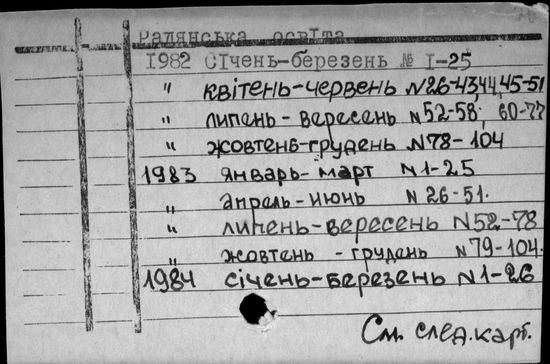 Радянська освіта
1982 Січень-березень № I-25
" квітень-червень N26-43,44,45-51
" липень-вересень N52-58; 60-77
" жовтень-грудень N78-104
1983 январь-март N1-25
" апрель-июнь N 26-51.
" липень-вересень N52-78
" жовтень-грудень N79-104.
1984 січень-березень N1-26
См. след.карт.